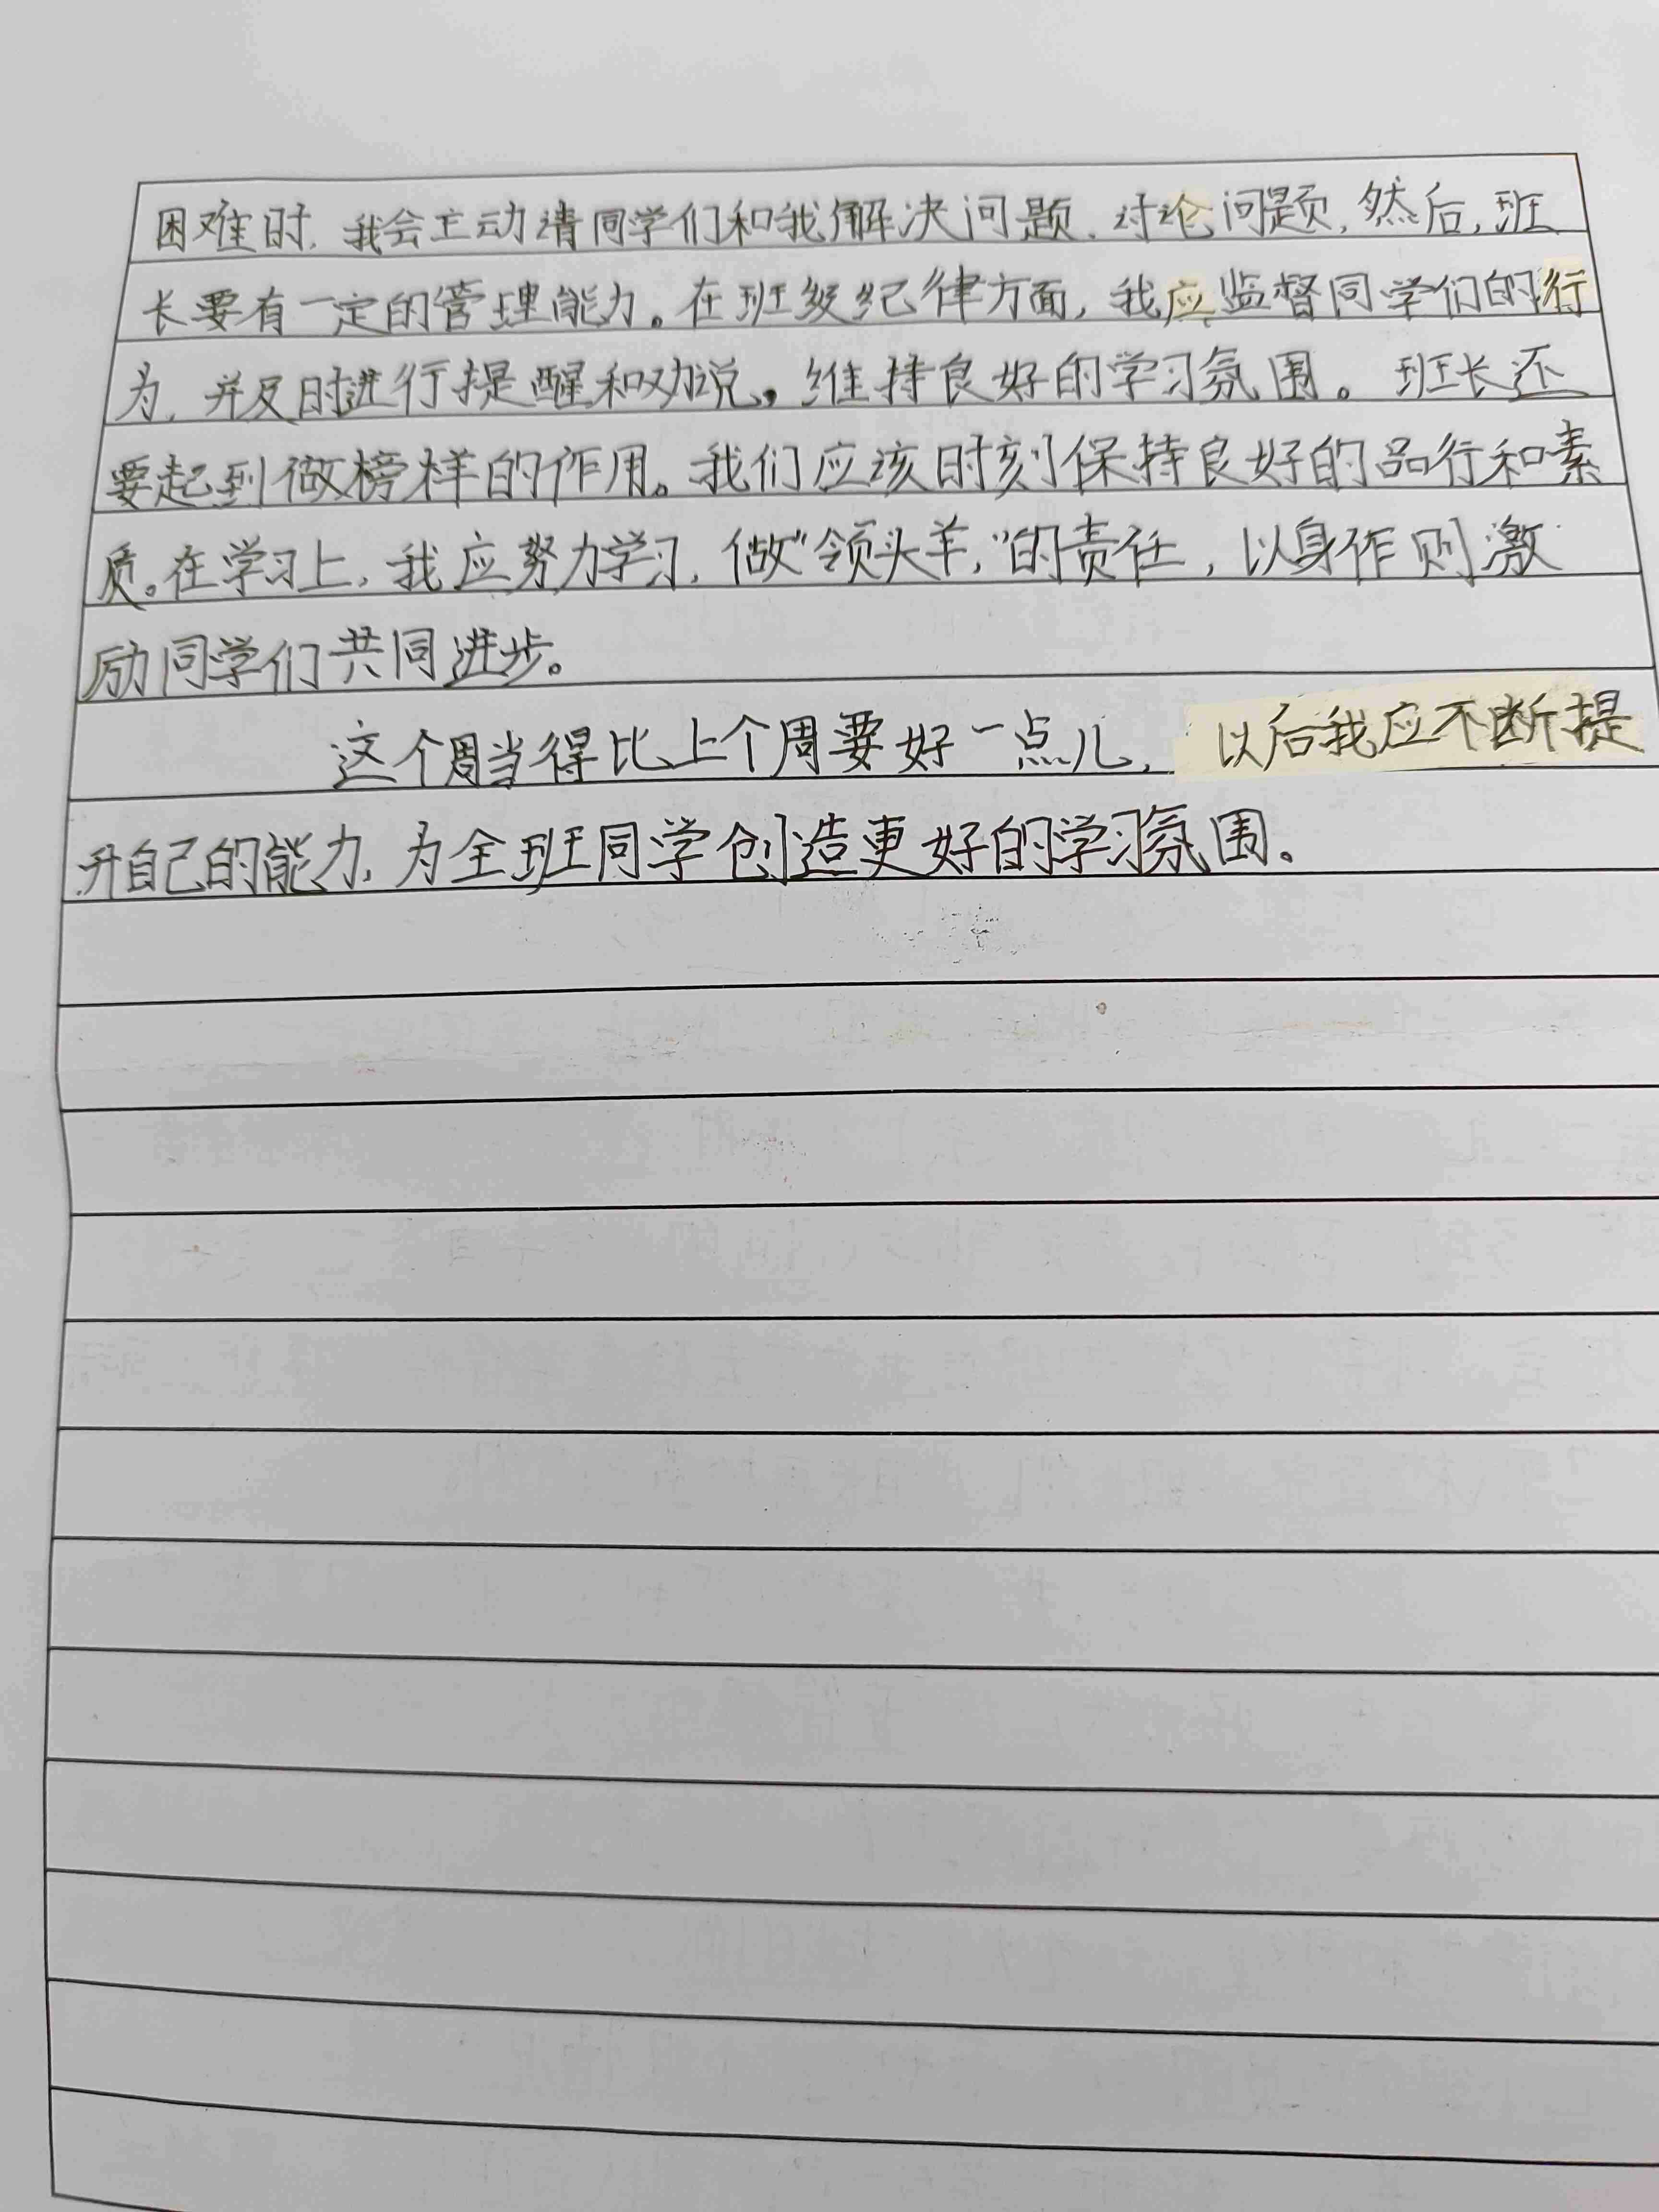 困难时,我会主动请同学们和我解决问题、讨论问题,然后,班
长要有一定的管理能力。在班级纪律方面,我应监督同学们的行
为,并及时进行提醒和劝说,维持良好的学习氛围。班长还
要起到做榜样的作用。我们应该时刻保持良好的品行和素
质。在学习上,我应努力学习,做“领头羊,”的责任,以身作则激
励同学们共同进步。
这个周当得比上个周要好一点儿,以后我应不断提
升自己的能力,为全班同学创造更好的学习氛围。